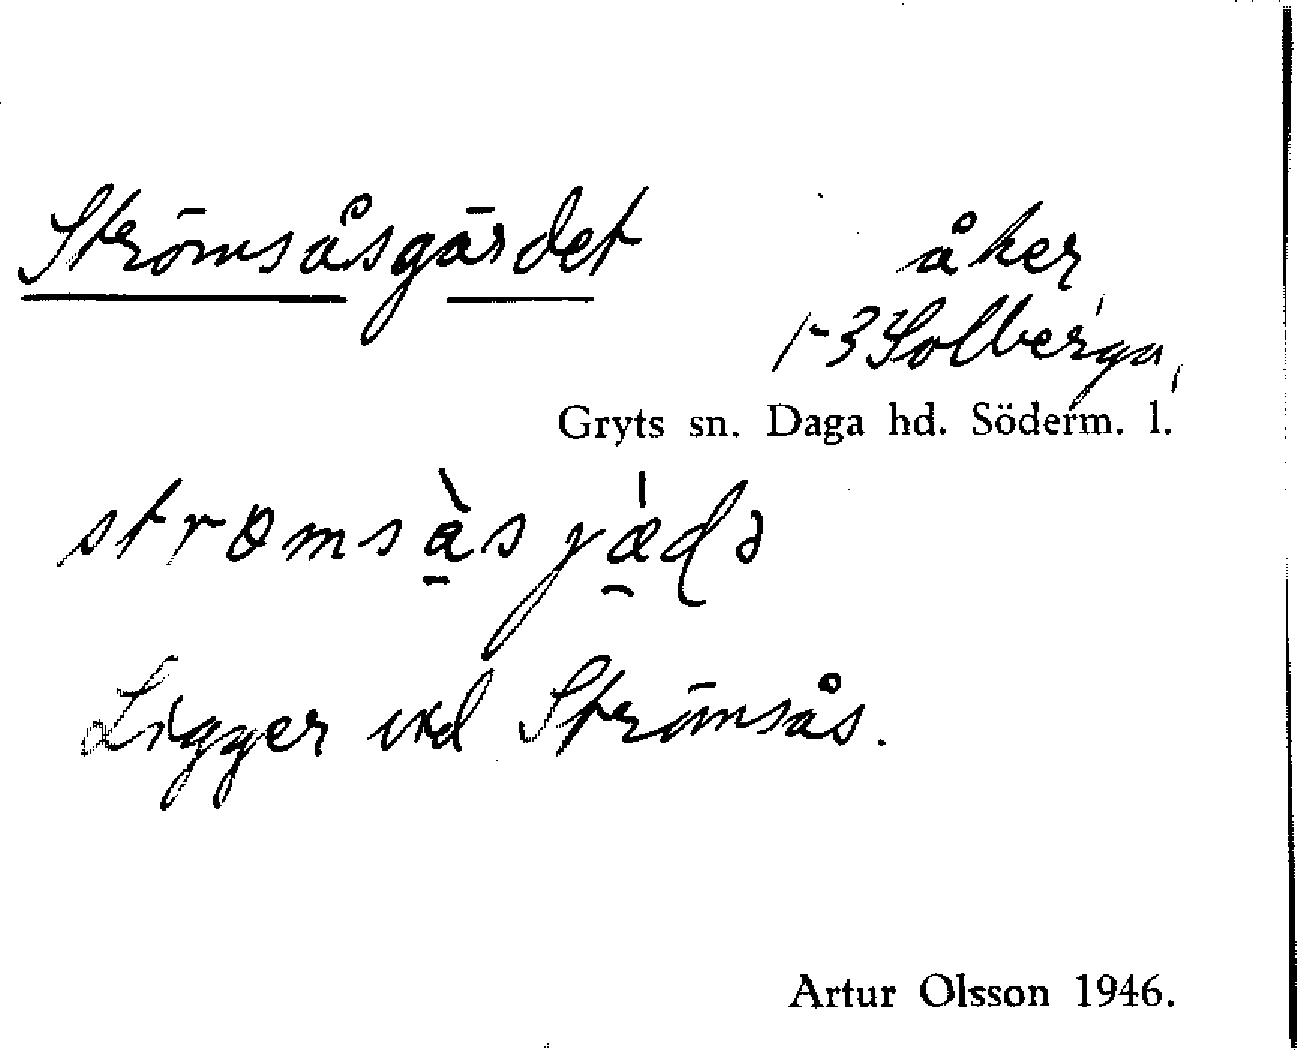 Strömsåsgärdet åker,
1-3 Solberga,
Gryts sn. Daga hd. Söderm. l.
Ligger vid Strömsås.
Artur Olsson 1946.